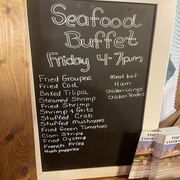 Seafood
Buffet
Friday 4-7pm
Fried Grouper
Fried Cod
Baked Tilipia
Steamed Shrimp
Fried Shrimp
Shrimp & Grits
Stuffed Crab
Stuffed mushrooms
Fried Green Tomatoes
Clam Strips
Fried Oysters
French Fries
Hushpuppies
Meat loaf
Ham
Chicken Wings
Chicken Tenders
THE
COOK